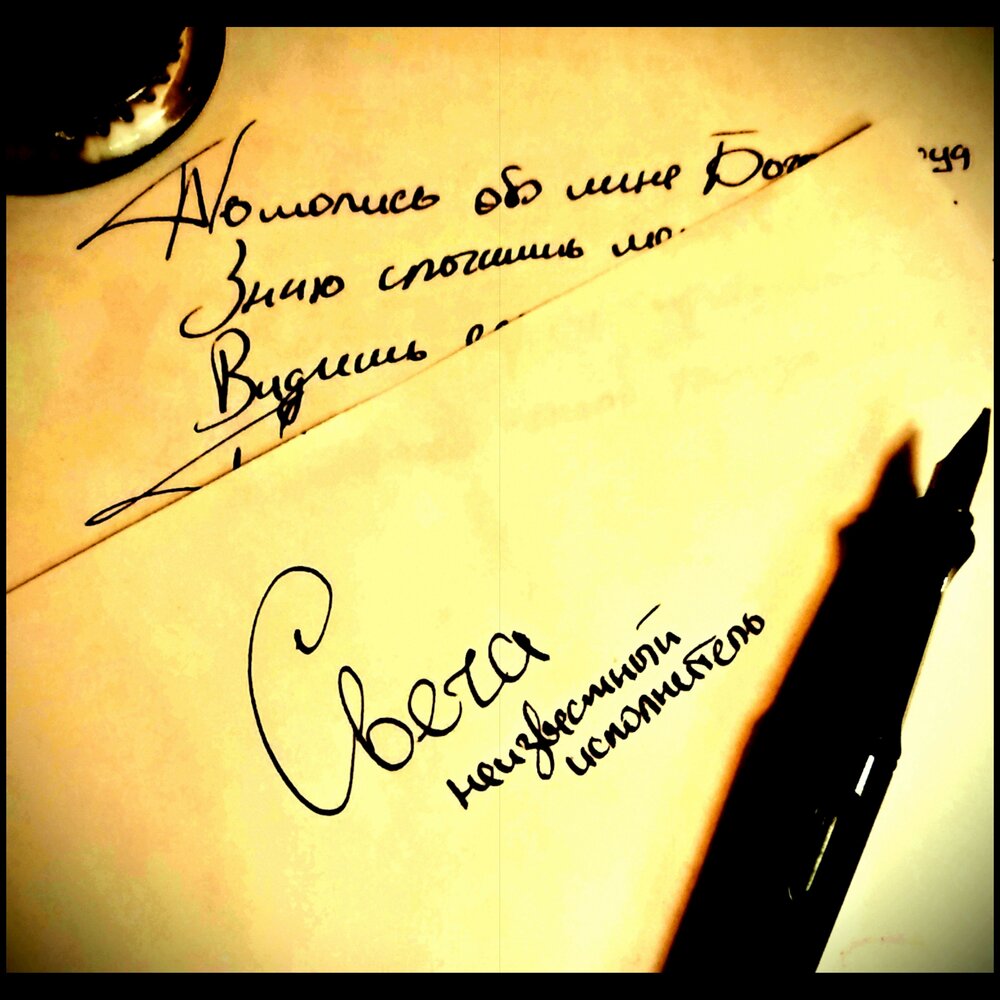 Помолись обо мне Бога
Знаю спогаишь
Видишь
Свеча
неизвестный
исполнитель